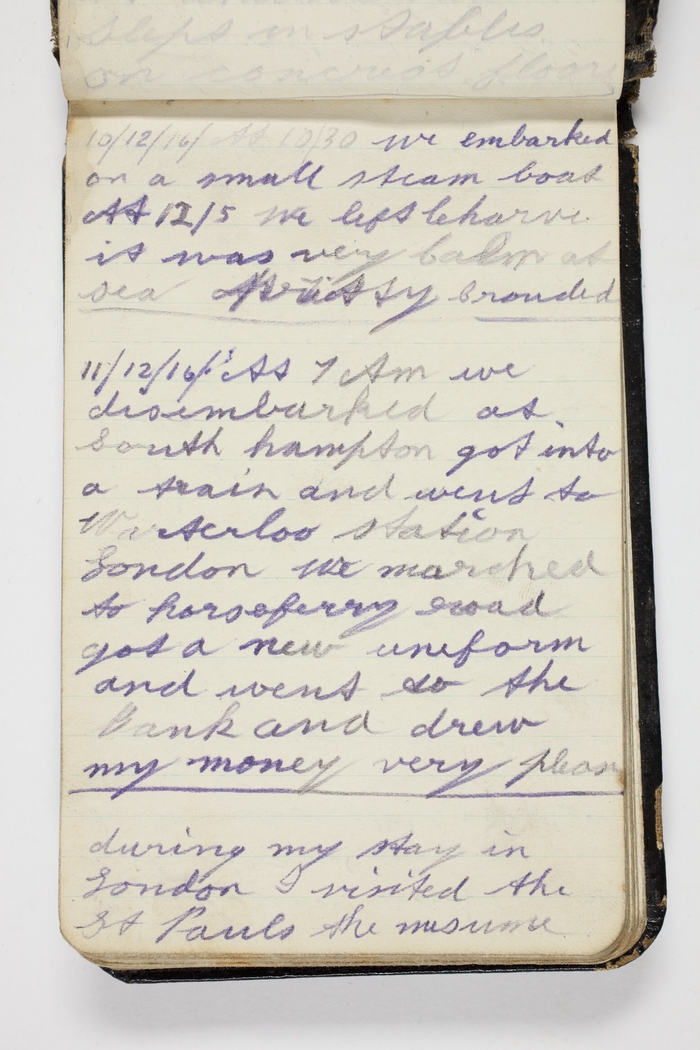 sleps in stables
on concreat floors
10/12/16/ At 10/30 we embarked
on a small steam boat
At 12/5 we left leharve.
it was very calm at
sea crouded
11/12/16/: At 7 Am we
disembarked at
South hampton got into
a train and went to
Warterloo station
London We marched
to horseferry road
got a new uneform
and went to the
Bank and drew
my money very pleas
during my stay in
London I visited the
St Pauls the mesume